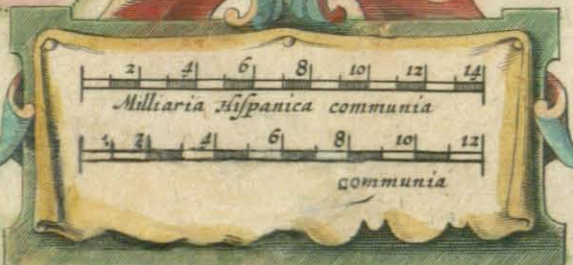 2 4 6 8 10 12 14
Milliaria Hispanica communia
1 2 4 6 8 10 12
communia